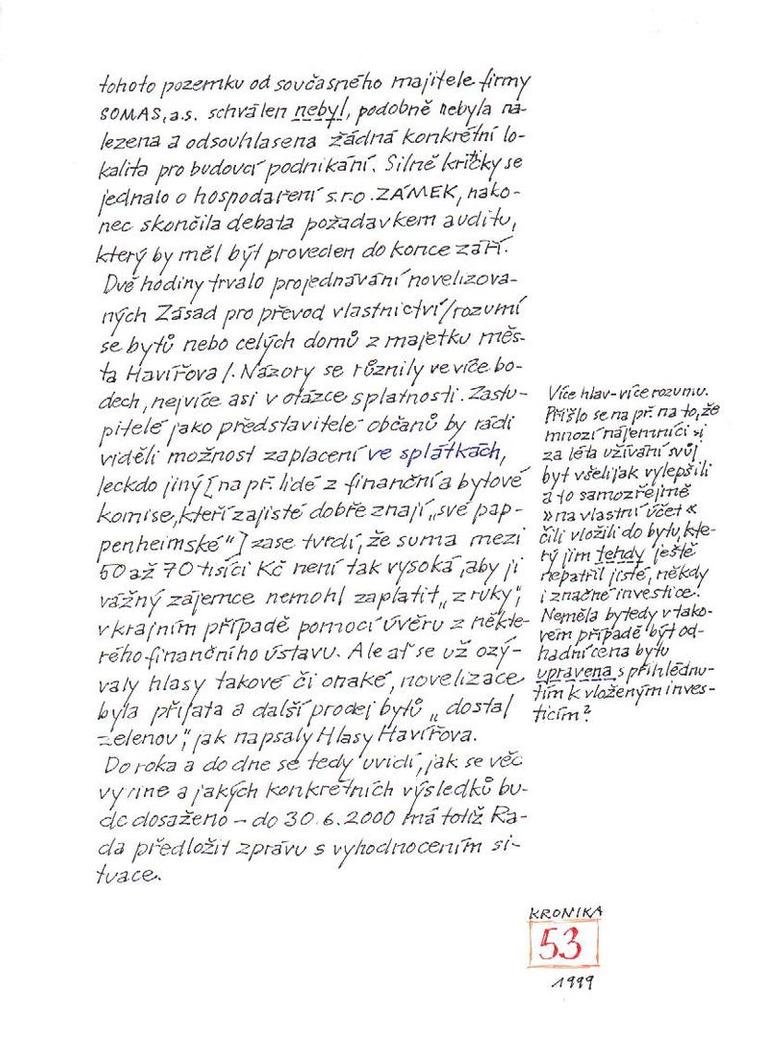 tohoto pozemku od současného majitele firmy
SOMAS, a.s. schválen nebyl, podobně nebyla na-
lezena a odsouhlasena žádná konkrétní lo-
kalita pro budoucí podnikání. Silně kriticky se
jednalo o hospodaření s.r.o. ZÁMEK, nako-
nec skončila debata požadavkem auditu,
který by měl být proveden do konce září.
Dvě hodiny trvalo projednávání novelizova-
ných Zásad pro převod vlastnictví /rozumí
se bytů nebo celých domů z majetku měs-
ta Havířova/. Názory se různily ve více bo-
dech, nejvíce asi v otázce splatnosti. Zastu-
pitelé jako představitelé občanů by rádi
viděli možnost zaplacení ve splátkách,
leckdo jiný [na př. lidé z finanční a bytové
komise, kteří zajisté dobře znají „své pap-
penheimské“] zase tvrdí, že suma mezi
50 až 70 tisíci Kč není tak vysoká, aby ji
vážný zájemce nemohl zaplatit „z ruky“,
v krajním případě pomocí úvěru z někte-
rého finančního ústavu. Ale ať se už ozý-
valy hlasy takové či onaké, novelizace
byla přijata a další prodej bytů „dostal
zelenou“, jak napsaly Hlasy Havířova.
Do roka a do dne se tedy uvidí, jak se věc
vyvine a jakých konkrétních výsledků bu-
de dosaženo – do 30.6.2000 má totiž Ra-
da předložit zprávu s vyhodnocením si-
tuace.
Více hlav - více rozumu.
Přišlo se na př. na to, že
mnozí nájemníci si
za léta užívání svůj
byt všelijak vylepšili
a to samozřejmě
»na vlastní účet«
čili vložili do bytu, kte-
rý jim tehdy ještě
nepatřil jisté, někdy
i značné investice.
Neměla by tedy v tako-
vém případě být od-
hadní cena bytu
upravena s přihlédnu-
tím k vloženým inves-
ticím?
KRONIKA
53
1999